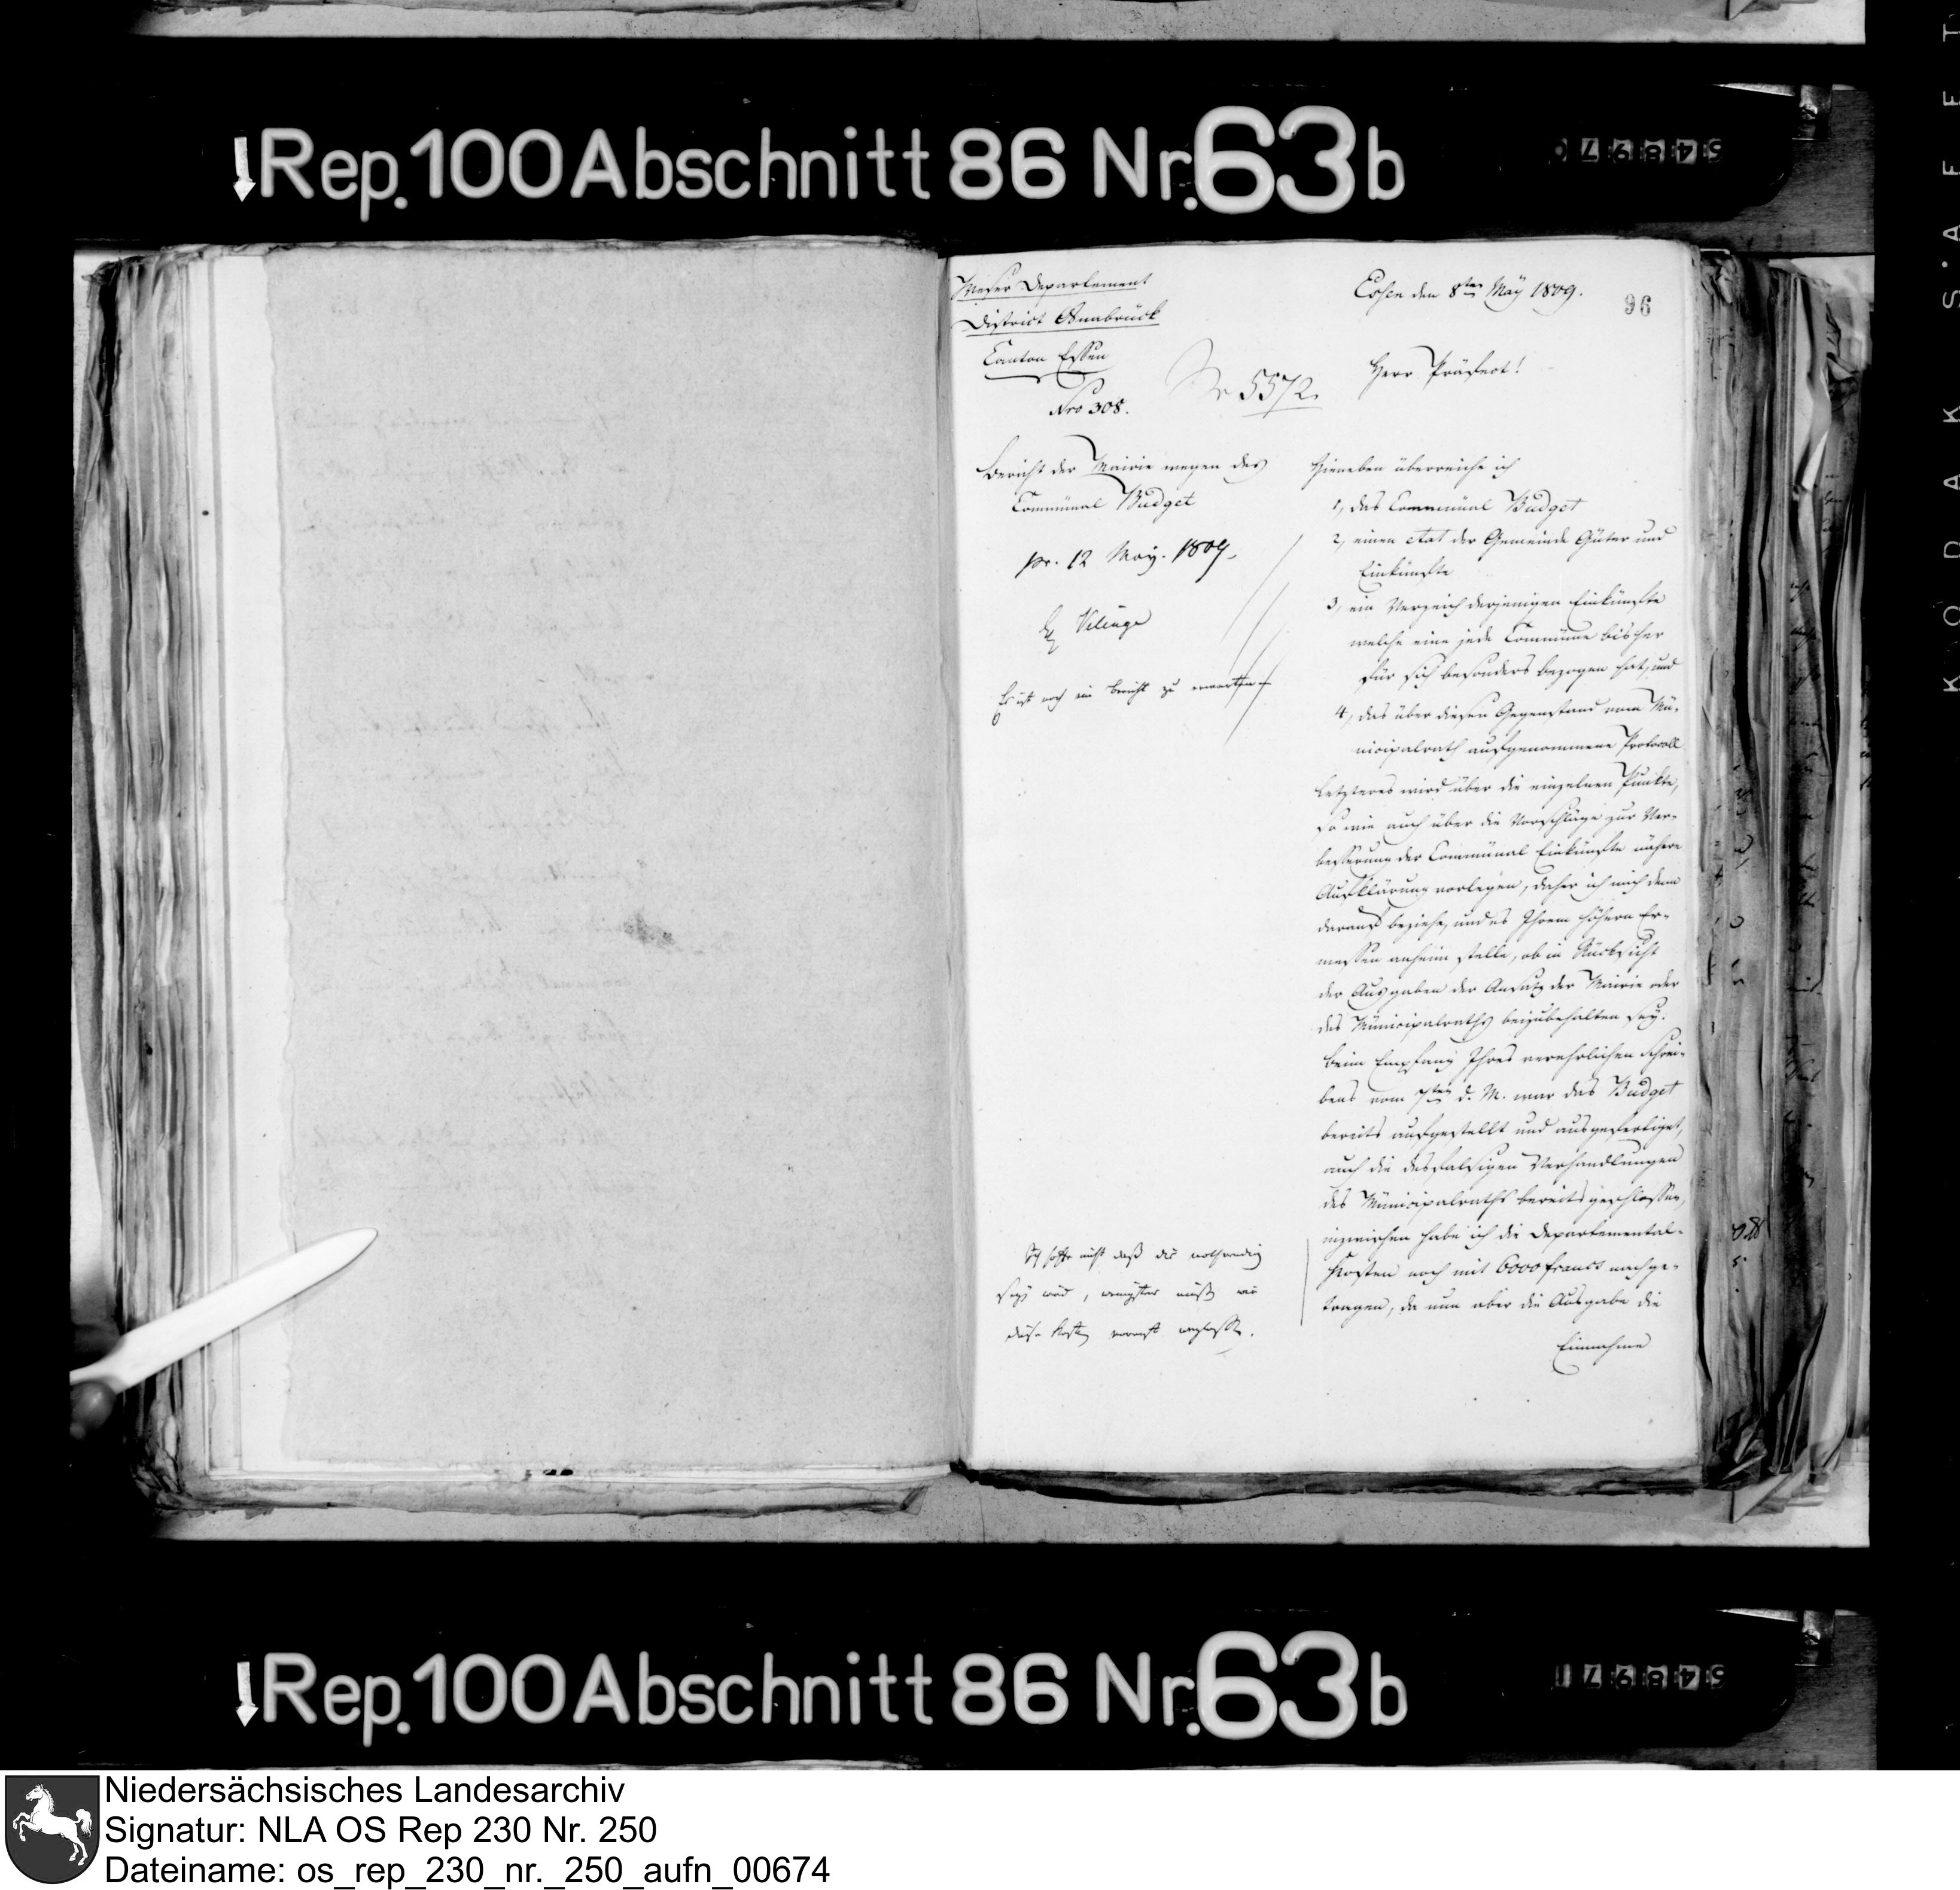 Rep. 100 Abschnitt 86 Nr. 63b
548970
Weser Departement
District Osnabrück
Canton Essen
Nro 308.
Nr 5572.
Essen den 8ten May 1809.
96
Herr Präfect!
Bericht der Mairie wegen des
Communal Budget
pr. 12 May. 1809.
Es ist noch ein Bericht zu erwarten
Hieneben überreiche ich
1, das Communal Budget
2, einen etat der Gemeinde Güter und
Einkünfte
3, ein Verzeich derjenigen Einkünfte
welche eine jede Commune bisher
für sich besonders bezogen hat, und
4, das über diesen Gegenstand vom Mu-
nicipalrath aufgenommene Protocoll
letzteres wird über die einzelnen Punkte,
so wie auch über die Vorschläge zur Ver-
besserung der Communal Einkünfte nähere
Aufklärung vorlegen, daher ich mich denn
darauf beziehe, und es Ihrem höhern Er-
messen anheim stelle, ob in Rücksicht
der Ausgaben der Ansatz der Mairie oder
des Municipalraths beizubehalten sey.
Beim Empfang Ihres verehrlichen Schrei-
bens vom 7ten d. M. war das Budget
bereits aufgestellt und ausgefertiget,
auch die desfalsigen Verhandlungen
des Municipalraths bereits geschlossen,
inzwischen habe ich die Departemental-
Kosten noch mit 6000 francs nachge-
tragen, da nun aber die Ausgabe die
Einnahme
Ich hoffe nicht daß dis nothwendig
seyn wird, wenigstens muß
diese Kosten
Rep. 100 Abschnitt 86 Nr. 63b
548971
KODAK SAFET
Niedersächsisches Landesarchiv
Signatur: NLA OS Rep 230 Nr. 250
Dateiname: os_rep_230_nr._250_aufn_00674